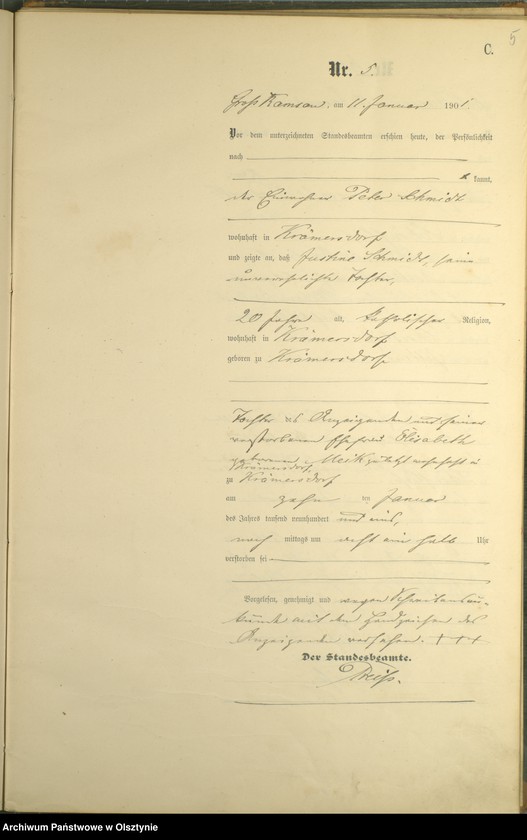 5
C.
Nr. 5.
Groß Ramsau, am 11. Januar 1901.
Vor dem unterzeichneten Standesbeamten erschien heute, der Persönlichkeit
nach
kannt,
der Einwohner Peter Schmidt
wohnhaft in Krämersdorf
und zeigte an, daß Justine Schmidt, seine
unverehelichte Tochter,
20 Jahre alt, katholischer Religion,
wohnhaft in Krämersdorf
geboren zu Krämersdorf
Tochter des Anzeigenden und seiner
verstorbenen Ehefrau Elisabeth
geborenen zuletzt wohnhaft in
Krämersdorf,
zu Krämersdorf
am zehn ten Januar
des Jahres tausend neunhundert und eins,
nach mittags um acht ein halb Uhr
verstorben sei
Vorgelesen, genehmigt und wegen Schreibens un-
kunde mit den Handzeichen des
Anzeigenden versehen. + + +
Der Standesbeamte.
Archiwum Państwowe w Olsztynie